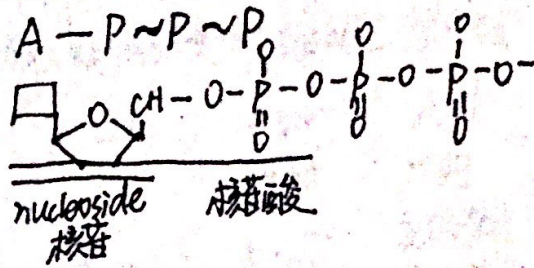 A — P ~ P ~ P
O O O
O CH — O — P — O — P — O — P — O⁻
O O O
nucleoside 核苷酸
核苷